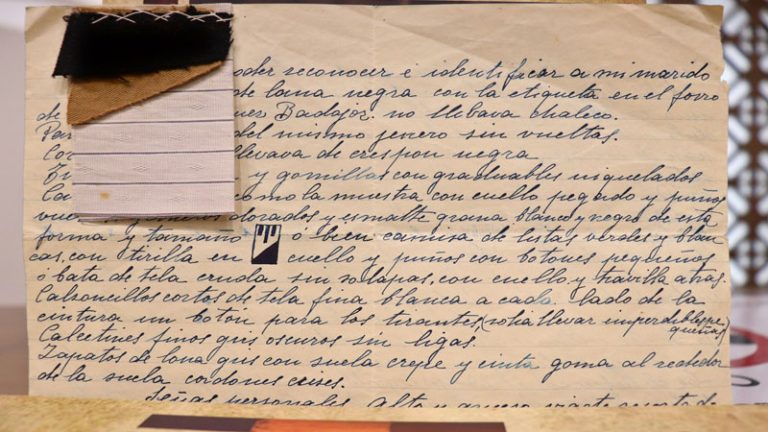 oder reconocer é identificar a mi marido
de lana negra con la etiqueta en el forro
de uez Badajoz. no llebava chaleco.
Pan del mismo jenero sin vueltas.
Cor llevava de crespon negra
y gomillas con graduables niquelados
Ca como la muestra con cuello pegado y puños
vue dorados y esmalte grana blanco y negro de esta
forma y tamaño ó bien camisa de listas verdes y blan
cas, con tirilla en cuello y puños con botones pequeños
ó bata de tela cruda sin solapas, con cuello y travilla atras.
Calsoncillos cortos de tela fina blanca a cada lado de la
cintura un botón para los tirantes, (solia llevar imperdibles pequeños)
Calcetines finos gris oscuros sin ligas.
Zapatos de lona gris con suela crepe y cinta goma al rededor
de la suela cordones grises.
Señas personales Alto y